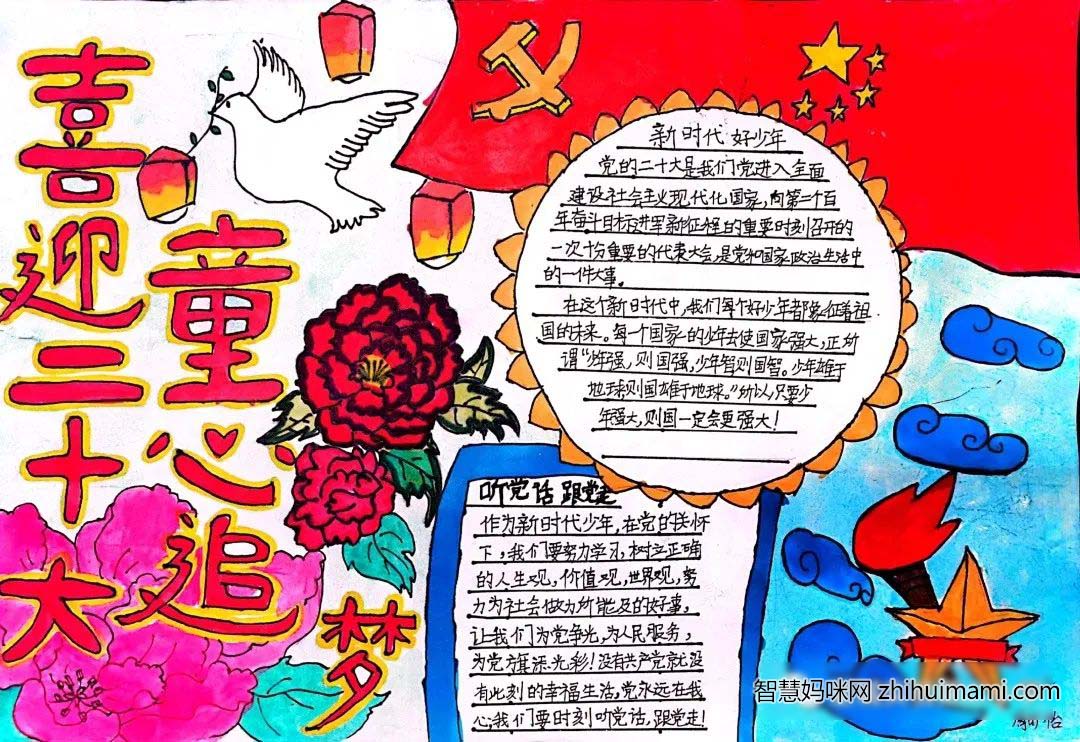 喜迎二十大
童心追
梦
新时代 好少年
党的二十大是我们党进入全面
建设社会主义现代化国家,向第二个百
年奋斗目标进军新征程的重要时刻召开的
一次十分重要的代表大会,是党和国家政治生活中
的一件大事。
在这个新时代中,我们每个好少年都象征着祖
国的未来。每一个国家的少年去使国家强大,正所
谓“少年强,则国强,少年智则国智。少年雄于
地球则国雄于地球。”所以,只要少
年强大,则国一定会更强大!
听党话 跟党走
作为新时代少年,在党的关怀
下,我们要努力学习,树立正确
的人生观,价值观,世界观,努
力为社会做力所能及的好事,
让我们为党争光,为人民服务,
为党旗添光彩!没有共产党就没
有此刻的幸福生活,党永远在我
心,我们要时刻听党话,跟党走!
智慧妈咪网 zhihuimami.com